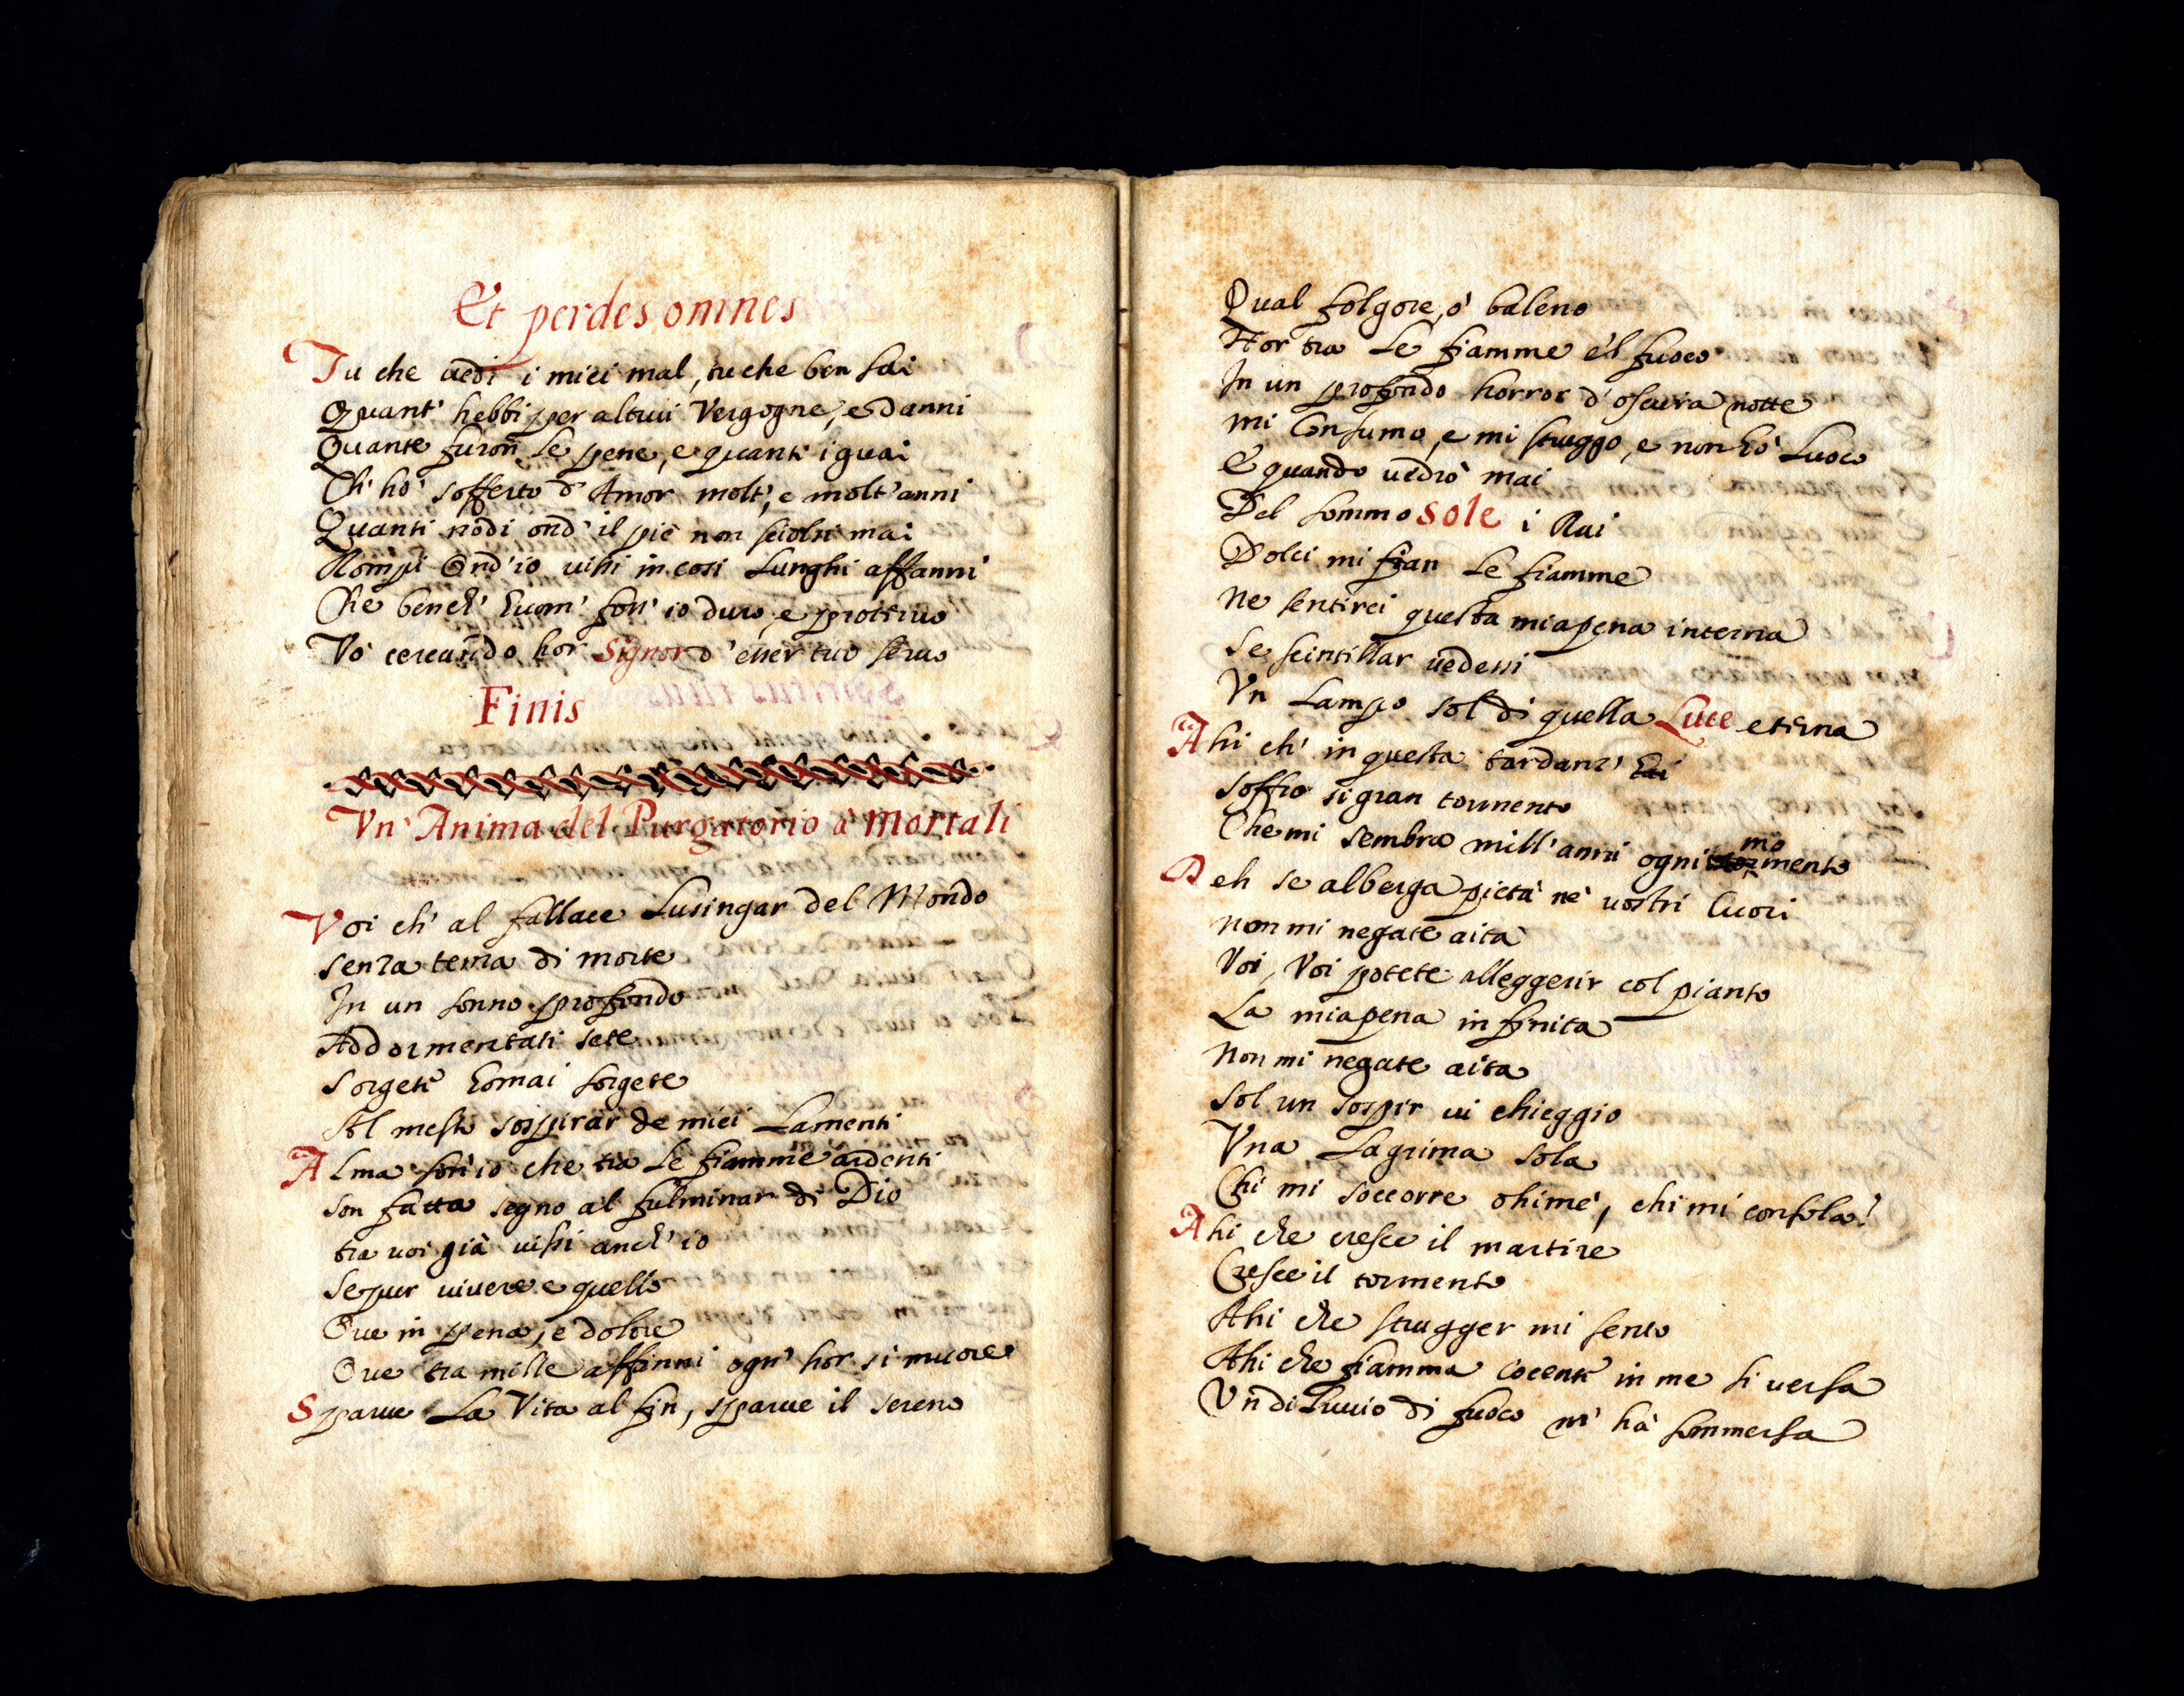 Et perdes omnes
Tu che uedi i miei mal, tu che ben sai
Quant' hebbi per altrui Vergogne, e danni
Quante furon le pene, e quanti i guai
Ch' ho' sofferto d' Amor molt', e molt' anni
Quanti nodi ond' il piè non sciolsi mai
Rompi Ond' io uissi in cosi Lunghi affanni
Che bench' huom' son' io duro, e proteruo
Vo' cercando hor Signor d' esser tuo seruo
Finis
Vn' Anima del Purgatorio a' Mortali
Voi ch' al fallace Lusingar del Mondo
senza tema di morte
In un sonno profondo
Addormentati sete
Sorgete homai sorgete
Al mesto sospirar de miei Lamenti
Alma son' io che tra le fiamme ardenti
son fatta segno al fulminar di Dio
tra uoi già uissi anch' io
Se pur uiuere e quello
Oue in pena, e dolore
Oue tra mille affanni ogn' hor si muore
Sparue La Vita al fin, sparue il sereno
Qual folgore, o' baleno
Hor tra le fiamme e'l fuoco
In un profondo horror d' oscura notte
mi Consumo, e mi struggo, e non ho' Luoco
E quando uedrò mai
Del sommo Sole i Rai
Dolci mi fian le fiamme
Ne sentirei questa mia pena interna
Se scintillar uedessi
Vn Lampo sol di quella Luce eterna
Ahi ch' in questa tardanz' hai
soffro si gran tormento
Che mi sembra mill' anni ogni momento
Deh se alberga pietà ne' uostri Cuori
non mi negate aita
Voi, Voi potete alleggerir col pianto
La mia pena infinita
Non mi negate aita
Sol un sospir ui chieggio
Vna Lagrima sola
Chi mi soccorre ohimè, chi mi consola?
Ahi che cresce il martire
Cresce il tormento
Ahi che strugger mi sento
Ahi che fiamma cocente in me si uersa
Vn diluuio di fuoco m' hà sommersa